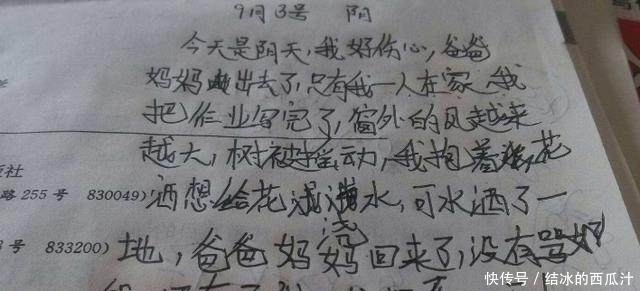 9月3号 阴
今天是阴天,我好伤心,爸爸
妈妈出去了,只有我一人在家,我
把作业写完了,窗外的风越来
越大,树被摇动,我抱着浇花
洒想给花浇水,可水洒了一
地,爸爸妈妈回来了,没有骂我
版社
路 255 号 830049)
3 号 833200)
快传号/结冰的西瓜汁